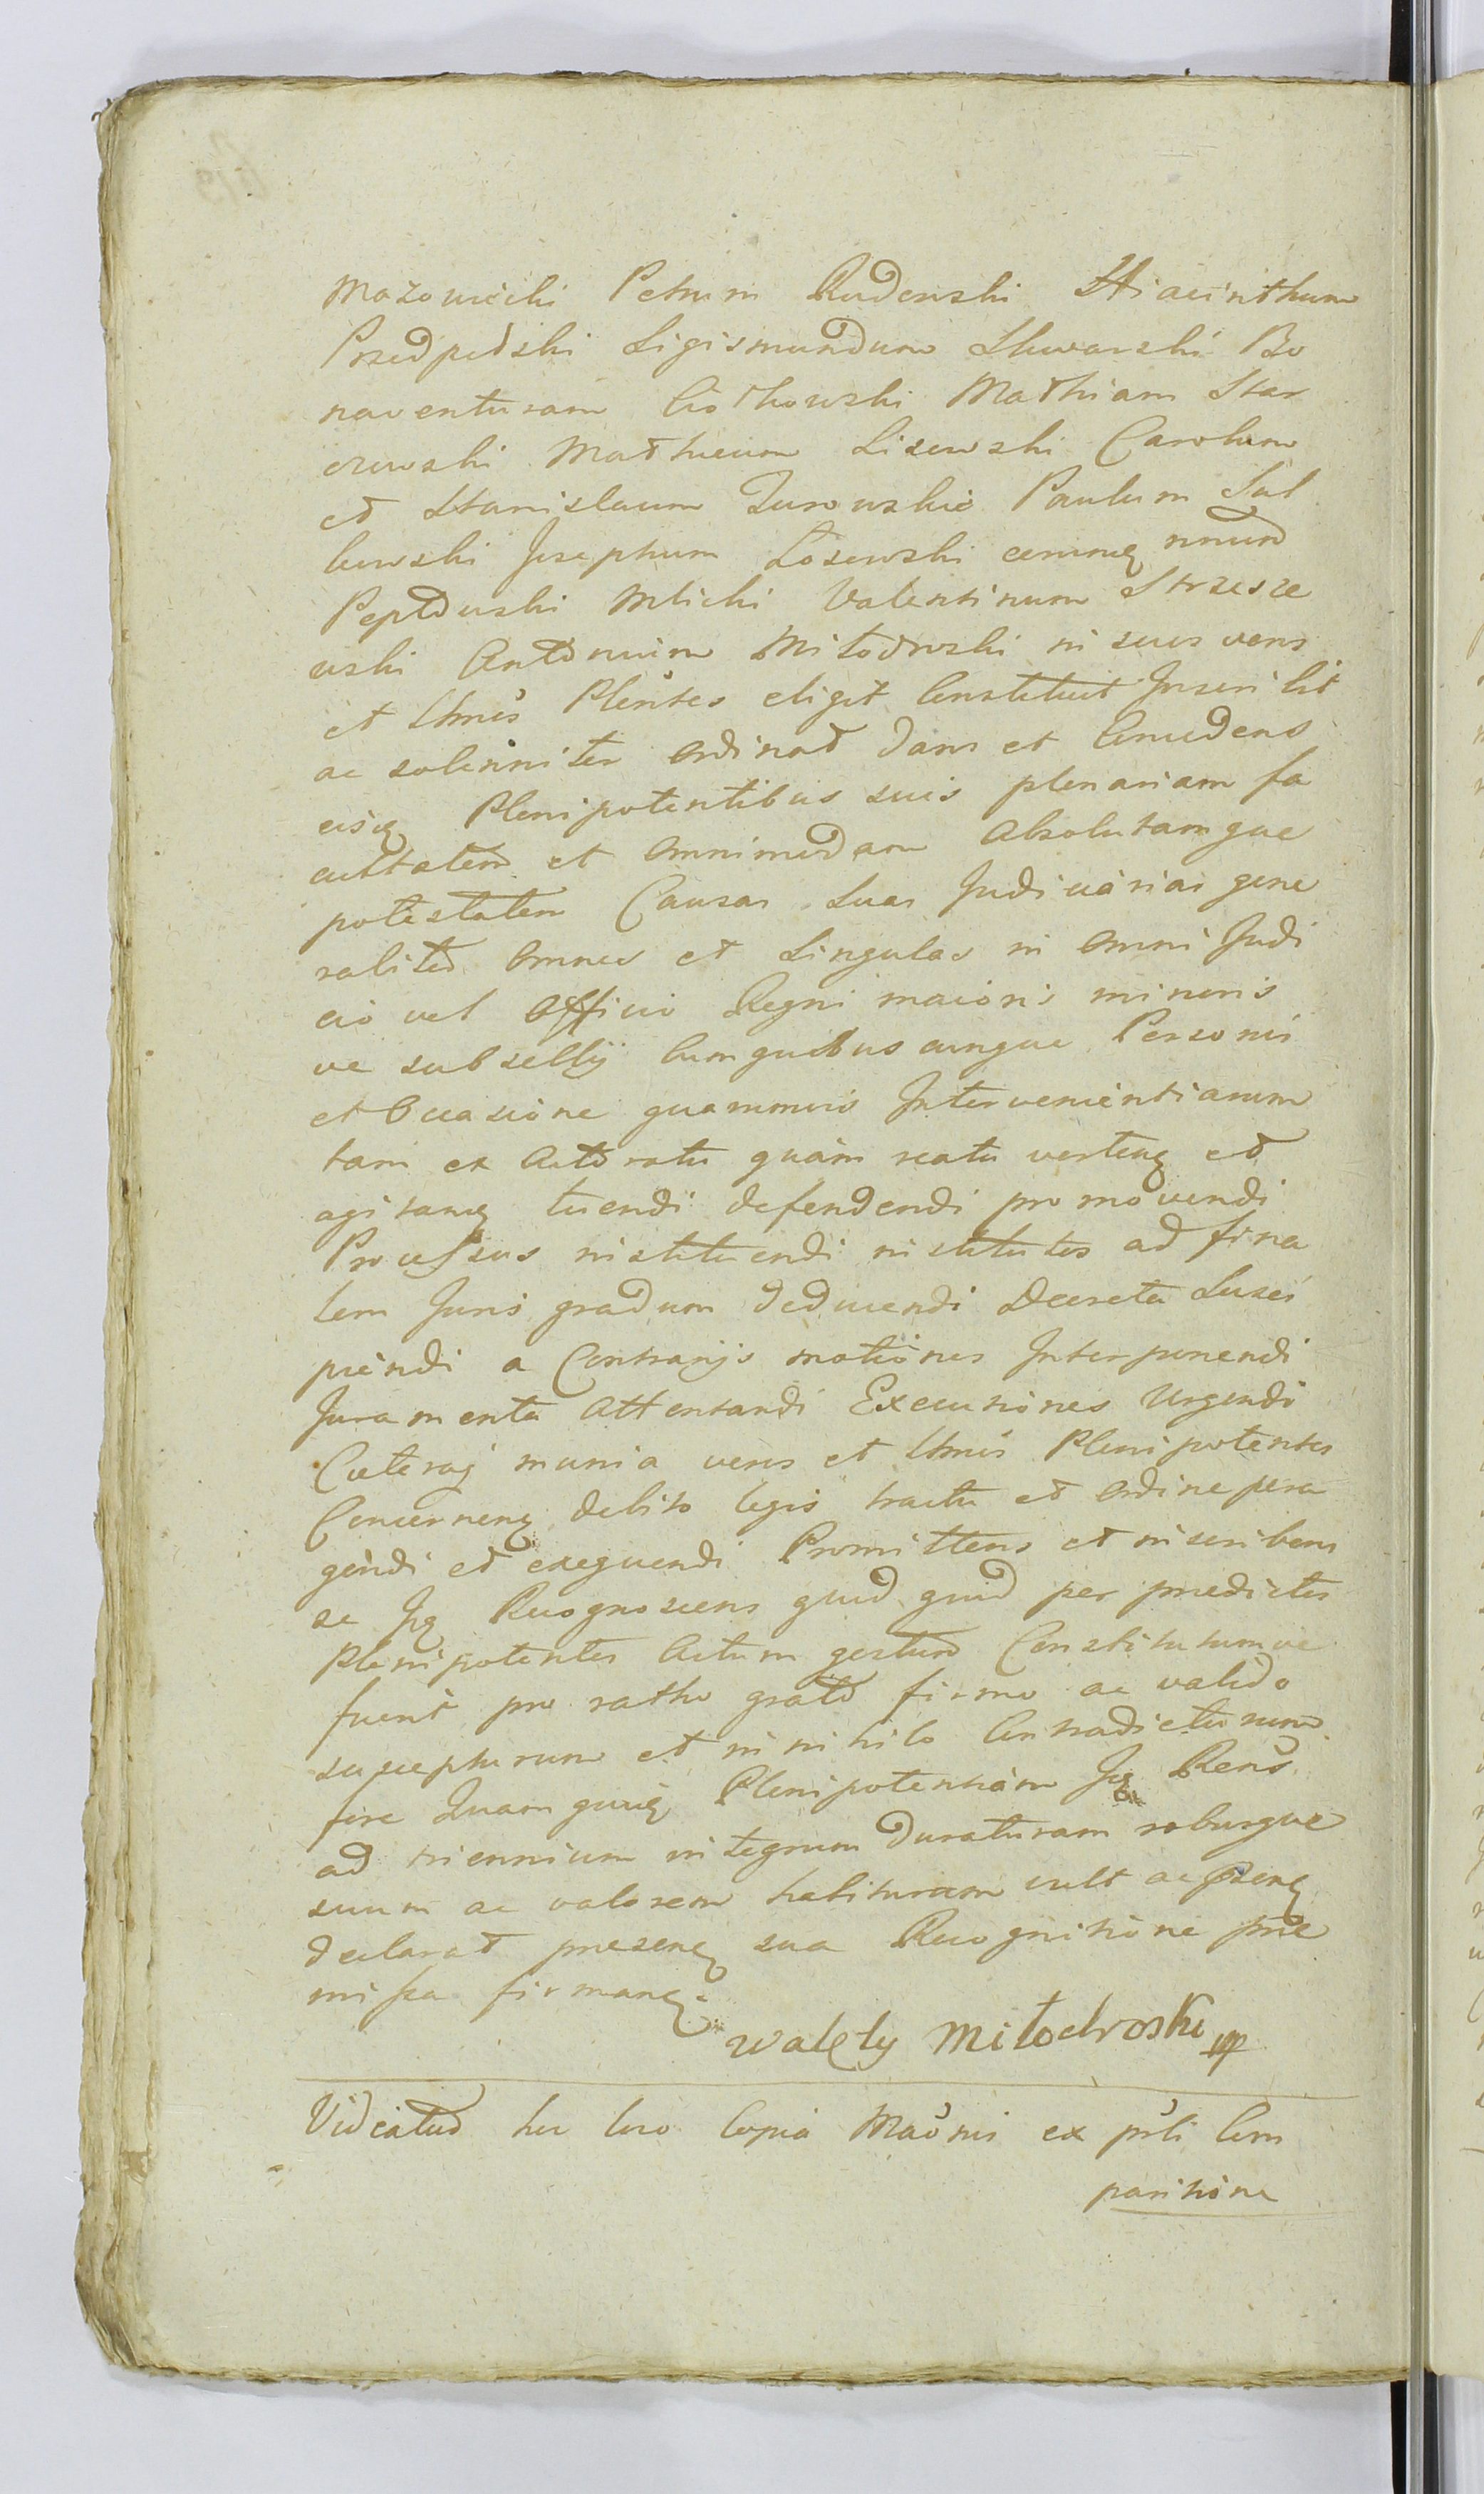 Mazowiecki Petrum Rudenski Hiacinthum
Przedpelski Sigismundum Skwarski Bo
naventuram Ciołkowski Mathiam Star
czewski Matheum Lisewski Carolum
et Stanislaum Zurowskie Paulum Sul
kowski Josephum Łosewski
Mlicki Valentinum Strzesze
wski Antonium Miłodrwski in suos veros
et Ltmõs Plẽntes eligit Constituit Inscribit
ac solenniter Ordinat Dans et Concedens
eisq Plenipotentibus suis plenariam fa
cultatem et Omnimodam Absolutamque
potestatem Causas Suas Judiciarias gene
raliter Omnes et Singulas in Omni Judi
cio vel Officio Regni maioris minoris
ve subsellij Cum quibus cunque Personis
et Occasione quammvis Intervenientiarum
tam ex Actoratu quàm reatu vertenq et
agitanq tuendi defendendi promovendi
Processus instituendi institutos ad fina
lem Juris gradum deducendi Decreta Susci
piendi a Contrarijs motiones Interponendi
Juramenta Attentandi Executiones Urgendi
Cœteraq munia veros et Ltmõs Plenipotentes
Concernenq debito legis tractu et Ordine pera
gendi et exequendi Promittens et inscribens
se Jq Recognoscens quid quid per prædictos
Plenipotentes Actum gestum Constitutumve
fuerit pro ratho grato firmo ac valido
suscepturum et in nihilo Contradicturum
fore Quamquiq Plenipotentiam Jq Recñs
ad triennium integrum Duraturam roburque
suum ac valorem habituram vult ac
declarat præsenq sua Recognitione præ
missa firmanq.
Walęty Miłodroski mp
Videatur hoc loco Copia Maõnis ex prĩi Com
paritione